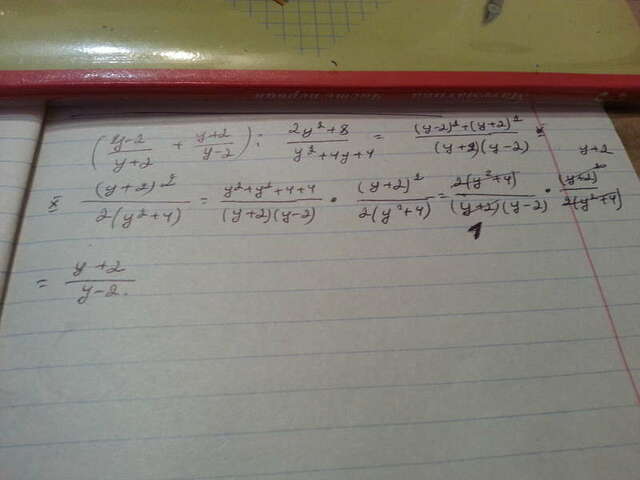 ((y-2)/(y+2) + (y+2)/(y-2)) : (2y²+8)/(y²+4y+4) = ((y-2)²+(y+2)²)/((y+2)(y-2)) ×
× (y+2)²/(2(y²+4)) = (y²+y²+4+4)/((y+2)(y-2)) · (y+2)²/(2(y²+4)) = 2(y²+4)/((y+2)(y-2)) · (y+2)²/(2(y²+4))
y+2
1
= (y+2)/(y-2).